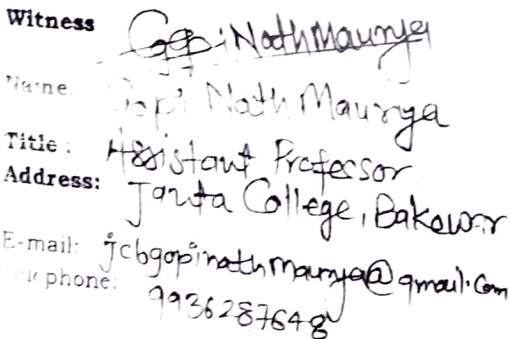 Witness GopiNathMaurya
Name: Gopi Nath Maurya
Title: Assistant Professor
Address: Janta College, Bakewar
E-mail: jcbgopinathmaurya@gmail.com
Telephone: 9936287648